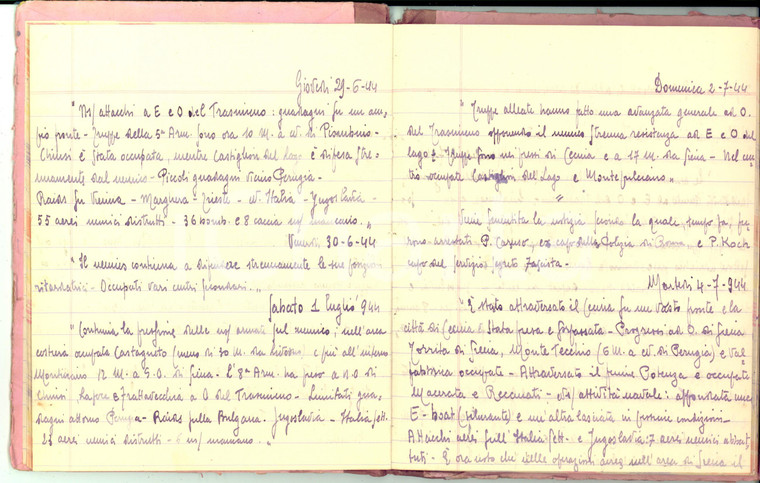 Giovedì 29-6-44
" Ns/ attacchi a E e O del Trasimeno: guadagni su un am-
pio fronte - Truppe della 5ª Arm. sono ora 10 M. a di Piombino -
Chiusi è stata occupata, mentre Castiglion del Lago è difesa stre-
namente dal nemico - Piccoli guadagni vicino Perugia -
Raids su Vienna - Marghera - Trieste - Italia - Jugoslavia -
55 aerei nemici distrutti - 36 bomb. e 8 caccia ns/ mancano. "
Venerdì 30-6-44
" Il nemico continua a difendere strenuamente le sue posizioni
ritardatrici - Occupati vari centri secondari. "
Sabato 1 luglio '944
" Continua la pressione delle ns/ armate sul nemico: nell'area
costiera occupata Castagneto (meno di 30 M. da Livorno) e più all'interno
Monticiano 12 M. a S.O. di Siena. L'8ª Arm. ha preso a
Chiusi e Frattavecchia a O del Trasimeno - Limitati gua-
dagni attorno Perugia - Raids sulla Bulgaria - Jugoslavia - Italia sett.
23 aerei nemici distrutti - 6 ns/ mancano. "
Domenica 2-7-44
" Truppe alleate hanno fatto una avanzata generale ad O.
del Trasimeno opponendo il nemico strenua resistenza ad E e O del
lago: Truppe sono nei pressi di Cecina e a 17 M. da Siena - Nel cen-
tro occupate Castiglion del Lago e Montepulciano "
"
Viene smentita la notizia secondo la quale, tempo fa, fu-
rono arrestati P. Caruso, ex capo della Polizia di Roma, e P. Koch
capo del servizio segreto fascista -
Martedì 4-7-944
" È stato attraversato il Cecina su un vasto fronte e la
città di Cecina è stata presa e sorpassata - Progressi ad O. di Siena
Torrita di Siena, Monte Tecchio (6 M. a di Perugia) e Val-
fabbrica occupate - Attraversato il fiume Potenza e occupate
Macerata e Recanati - attività navale: affondata una
E-boat (silurante) e un'altra lasciata in pessime condizioni -
Attacchi aerei sull'Italia sett. e Jugoslavia: 7 aerei nemici abbat-
tuti - È ora noto che nelle operazioni aeree nell'area di Siena il